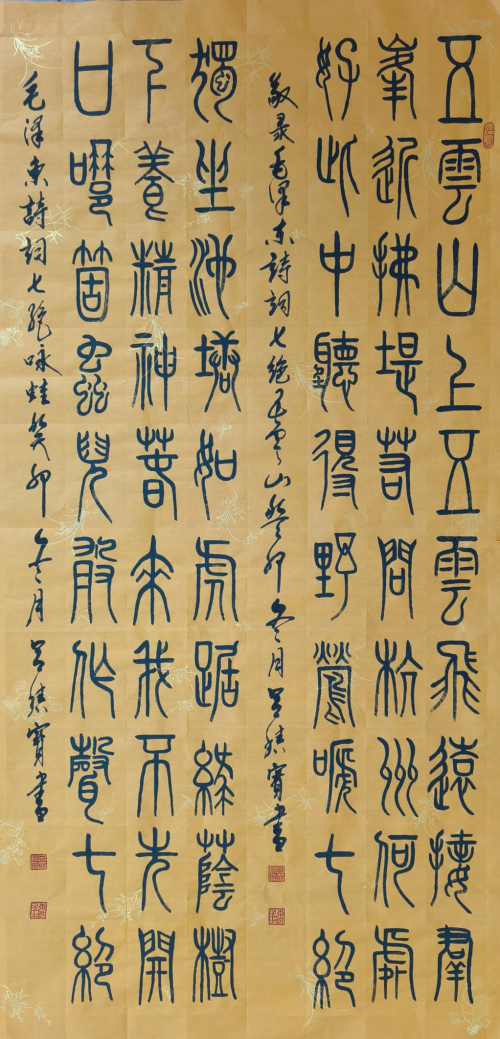 五雲山上五雲飛遠接羣
峯近拂堤若問杭州何處
好此中聽得野鶯嗁七絕
敬录毛泽东詩詞七絕五雲山癸卯冬月吕寳書
獨坐池塘如虎踞綠蔭樹
下養精神春來我不先開
口哪箇虫兒敢作聲七絕
毛泽东詩詞七絕咏蛙癸卯冬月吕寳書